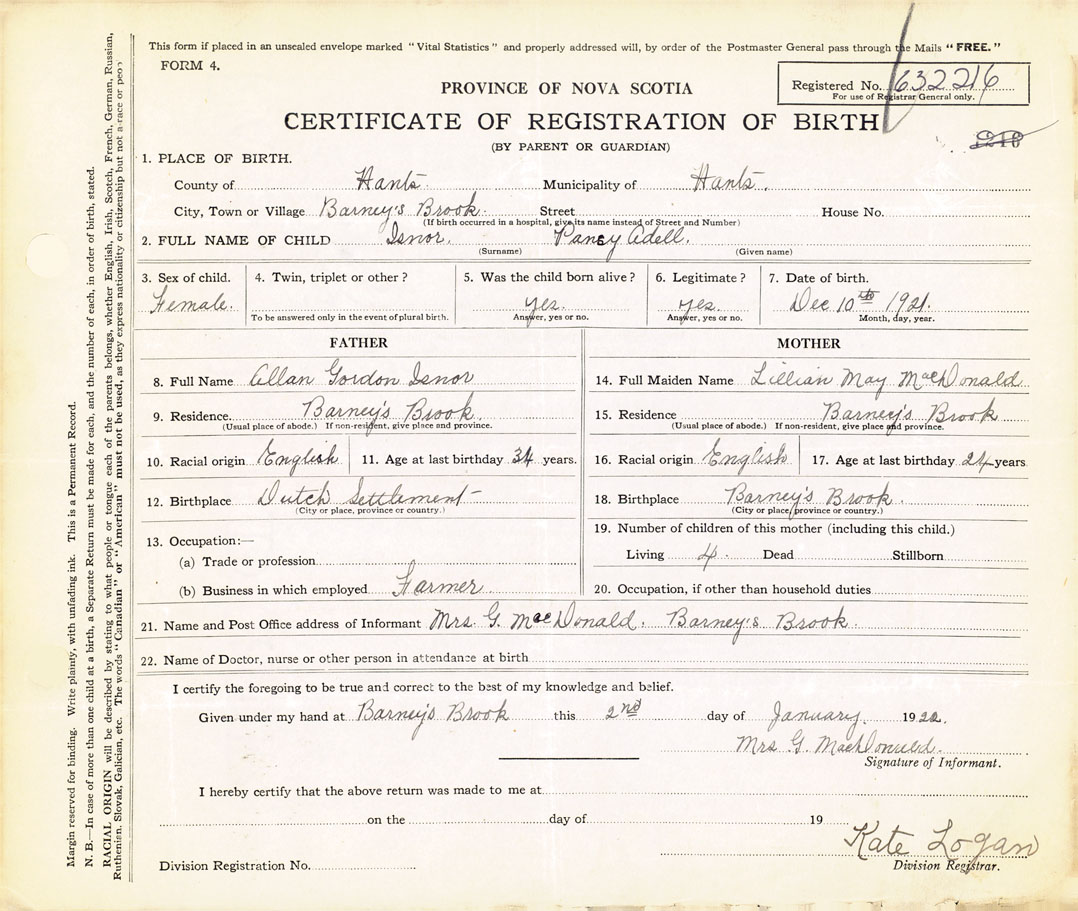 This form if placed in an unsealed envelope marked "Vital Statistics" and properly addressed will, by order of the Postmaster General pass through the Mails "FREE."
FORM 4.
Registered No. 632216
For use of Registrar General only.
PROVINCE OF NOVA SCOTIA
CERTIFICATE OF REGISTRATION OF BIRTH
(BY PARENT OR GUARDIAN)
1. PLACE OF BIRTH.
County of Hants Municipality of Hants.
City, Town or Village Barney's Brook Street House No.
(If birth occurred in a hospital, give its name instead of Street and Number)
2. FULL NAME OF CHILD Isnor, Pansy Adell.
(Surname) (Given name)
3. Sex of child. 4. Twin, triplet or other? 5. Was the child born alive? 6. Legitimate? 7. Date of birth.
Female. yes. yes. Dec 10th 1921.
To be answered only in the event of plural birth. Answer, yes or no. Answer, yes or no. Month, day, year.
FATHER
8. Full Name Allan Gordon Isnor
9. Residence. Barney's Brook.
(Usual place of abode.) If non-resident, give place and province.
10. Racial origin English 11. Age at last birthday 34 years.
12. Birthplace Dutch Settlement
(City or place, province or country.)
13. Occupation:—
(a) Trade or profession
(b) Business in which employed Farmer
MOTHER
14. Full Maiden Name Lillian May MacDonald
15. Residence Barney's Brook
(Usual place of abode.) If non-resident, give place and province.
16. Racial origin English 17. Age at last birthday 24 years
18. Birthplace Barney's Brook.
(City or place, province or country.)
19. Number of children of this mother (including this child.)
Living 4. Dead Stillborn
20. Occupation, if other than household duties
21. Name and Post Office address of Informant Mrs. G. MacDonald. Barney's Brook.
22. Name of Doctor, nurse or other person in attendance at birth
I certify the foregoing to be true and correct to the best of my knowledge and belief.
Given under my hand at Barney's Brook this 2nd day of January. 1922.
Mrs G. MacDonald.
Signature of Informant.
I hereby certify that the above return was made to me at
on the day of 19
Kate Logan
Division Registrar.
Division Registration No.
Margin reserved for binding. Write plainty, with unfading ink. This is a Permanent Record.
N. B.—In case of more than one child at a birth, a Separate Return must be made for each, and the number of each, in order of birth, stated.
RACIAL ORIGIN will be described by stating to what people or tongue each of the parents belongs, whether English, Irish, Scotch, French, German, Russian,
Ruthenian, Slovak, Galician, etc. The words "Canadian" or "American" must not be used, as they express nationality or citizenship but not a race or people